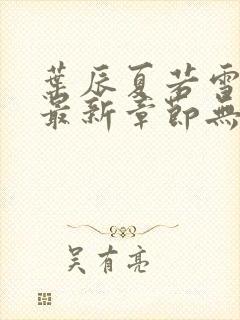 葉辰夏若雪
最新章節無
吳有亮